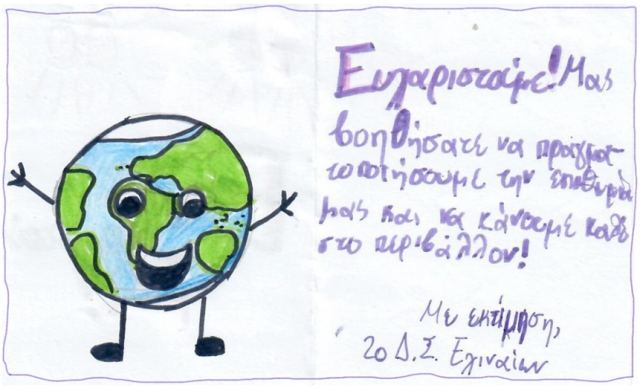 Ευχαριστούμε! Μας
βοηθήσατε να πραγμα-
τοποιήσουμε την επιθυμία
μας και να κάνουμε καλό
στο περιβάλλον!
Με εκτίμηση,
2ο Δ.Σ.